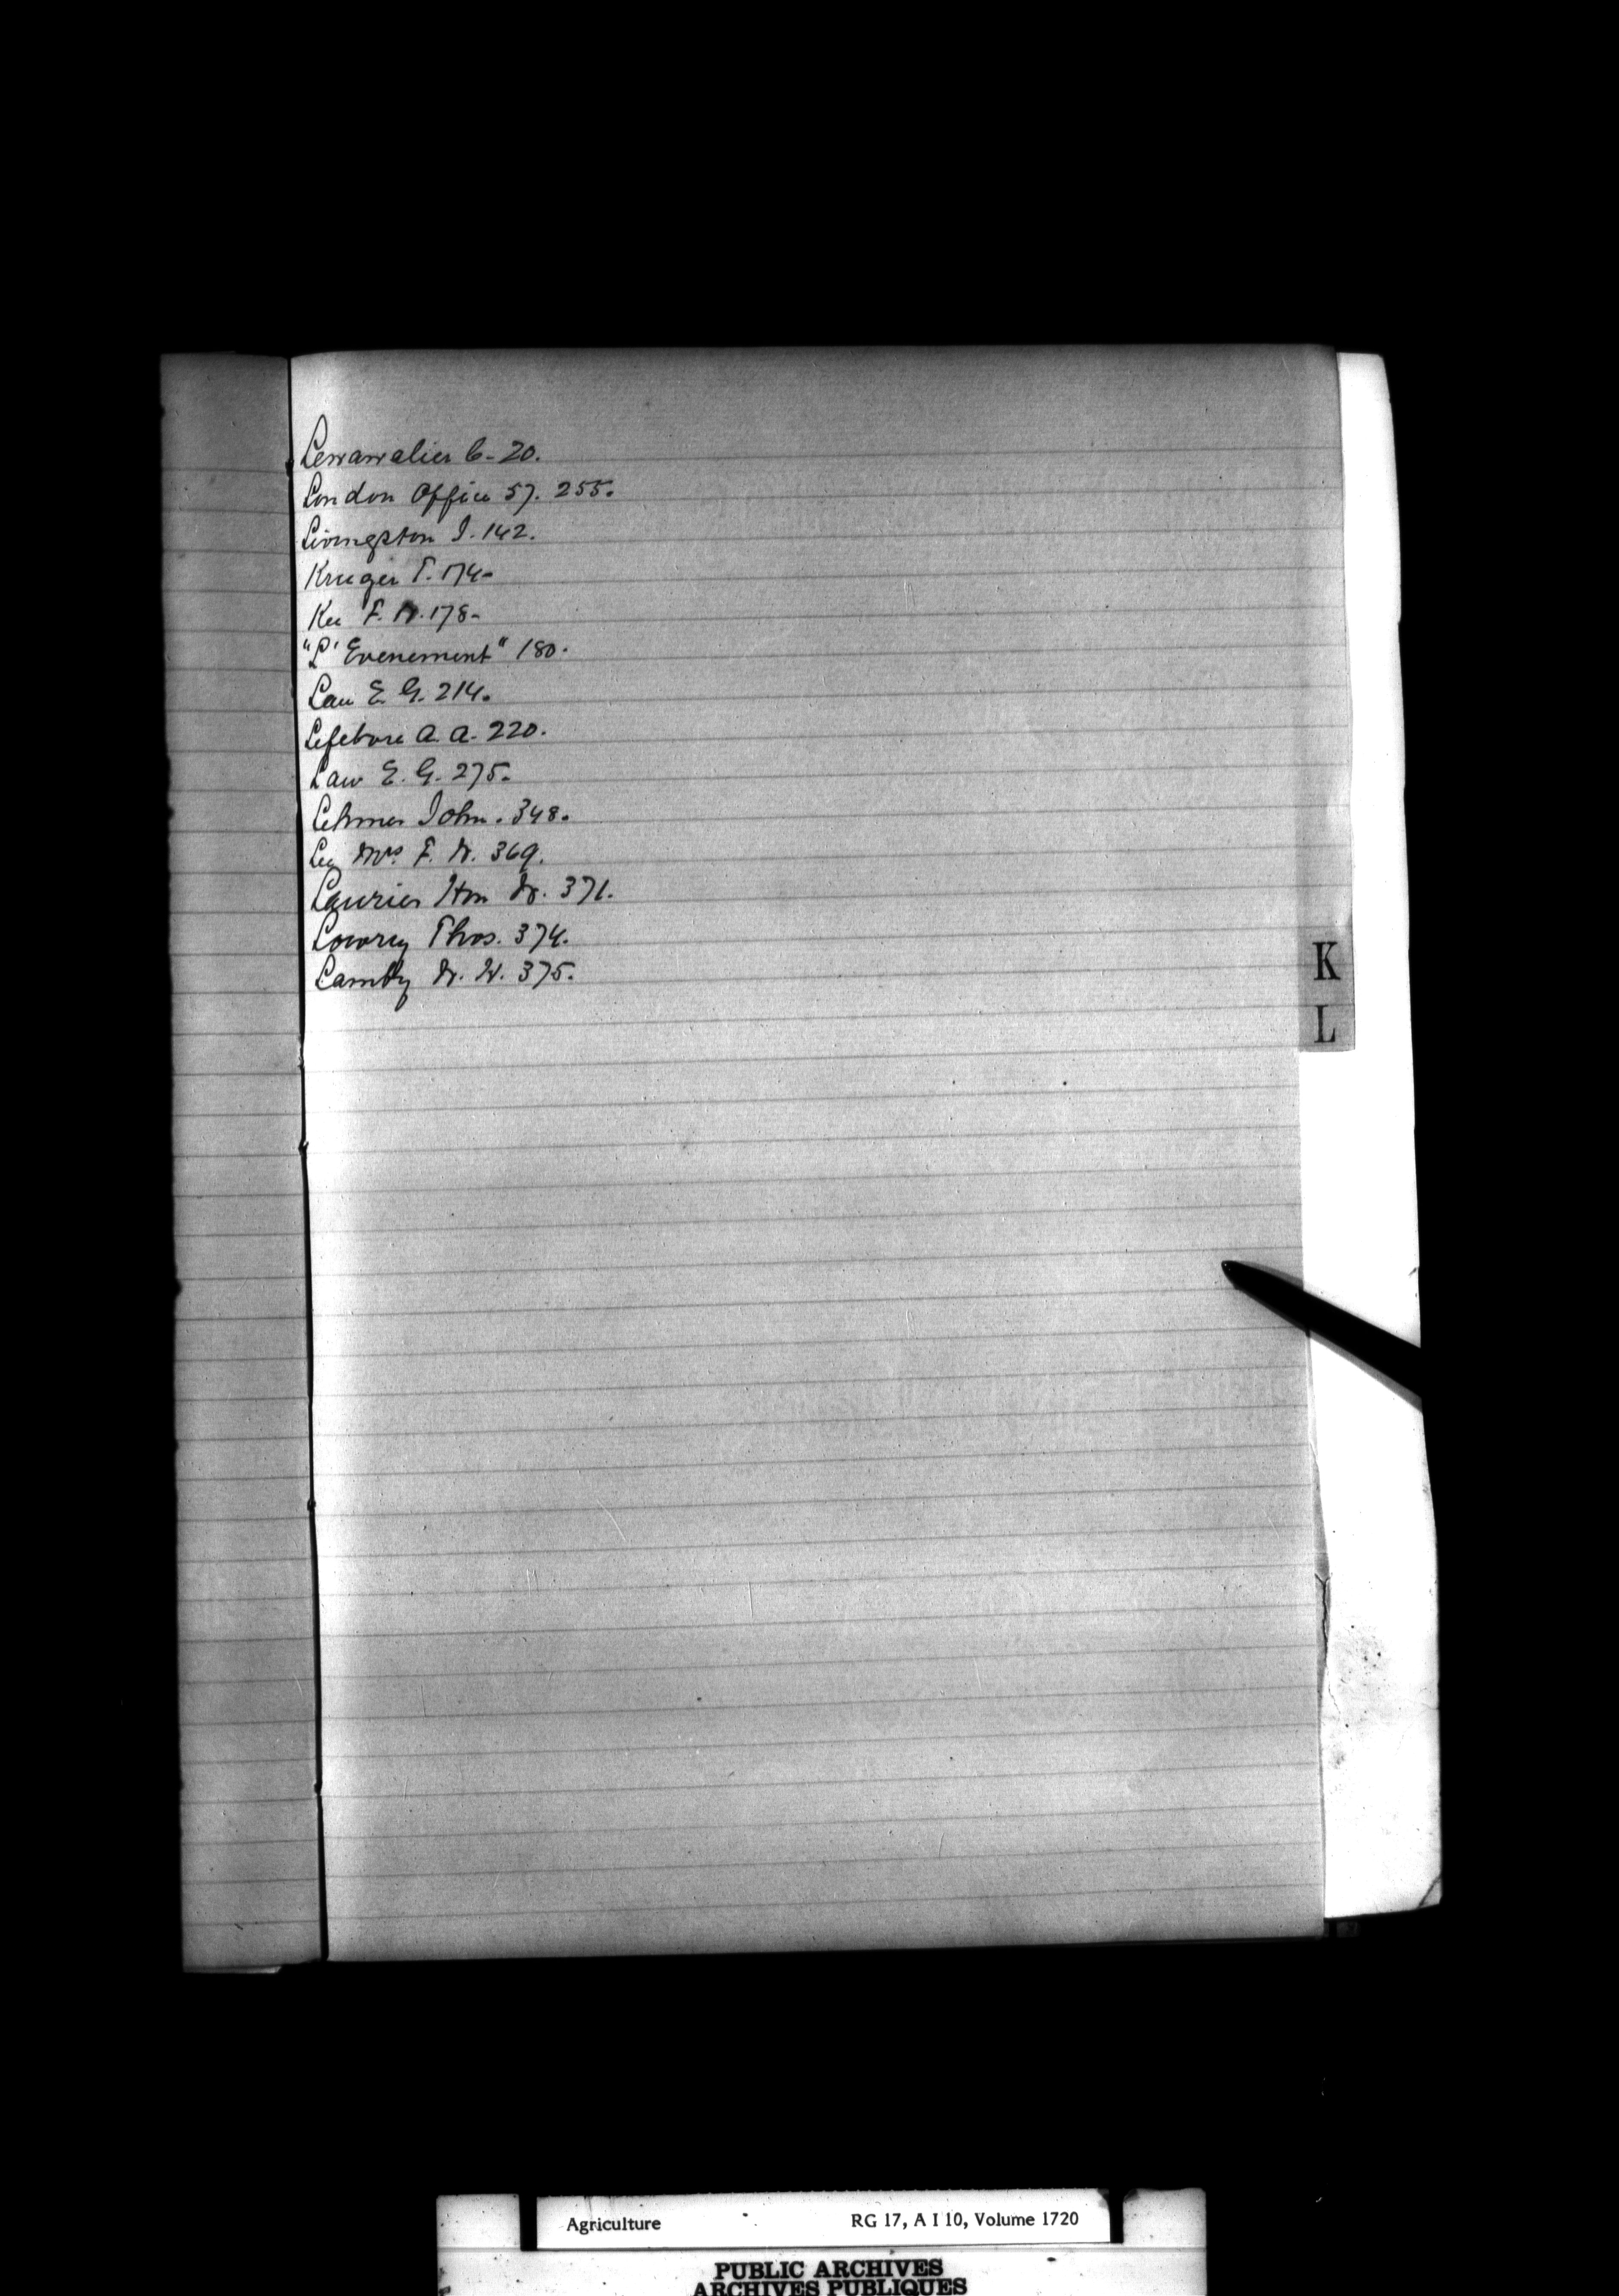 Levavalier C. 20.
London Office 57. 255.
Livingston I. 142.
Kruger T. 174-
Kee F. W. 178-
"L' Evenement" 180.
Law E. G. 214.
Lefebvre A. A. 220.
Law E. G. 275.
Lehmer John. 348.
Lee Mrs. F. W. 369.
Laurier Hon W. 371.
Lowrey Thos. 374.
Lambly W. H. 375.
K
L
Agriculture RG 17, A I 10, Volume 1720
PUBLIC ARCHIVES
ARCHIVES PUBLIQUES